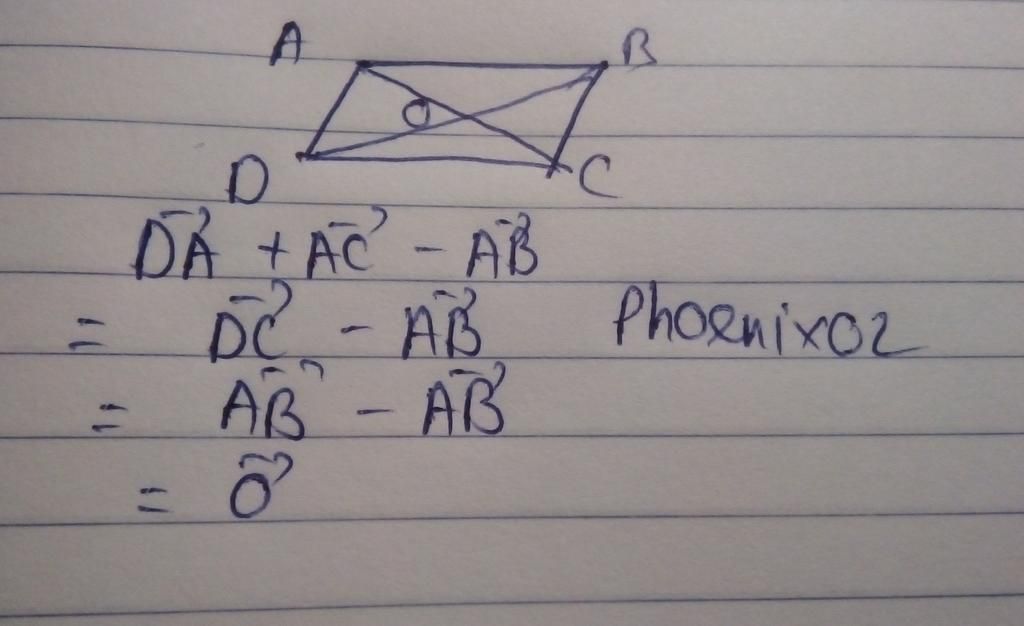 A B
O
D C
DA⃗ + AC⃗ - AB⃗
= DC⃗ - AB⃗ Phoenixoz
= AB⃗ - AB⃗
= O⃗